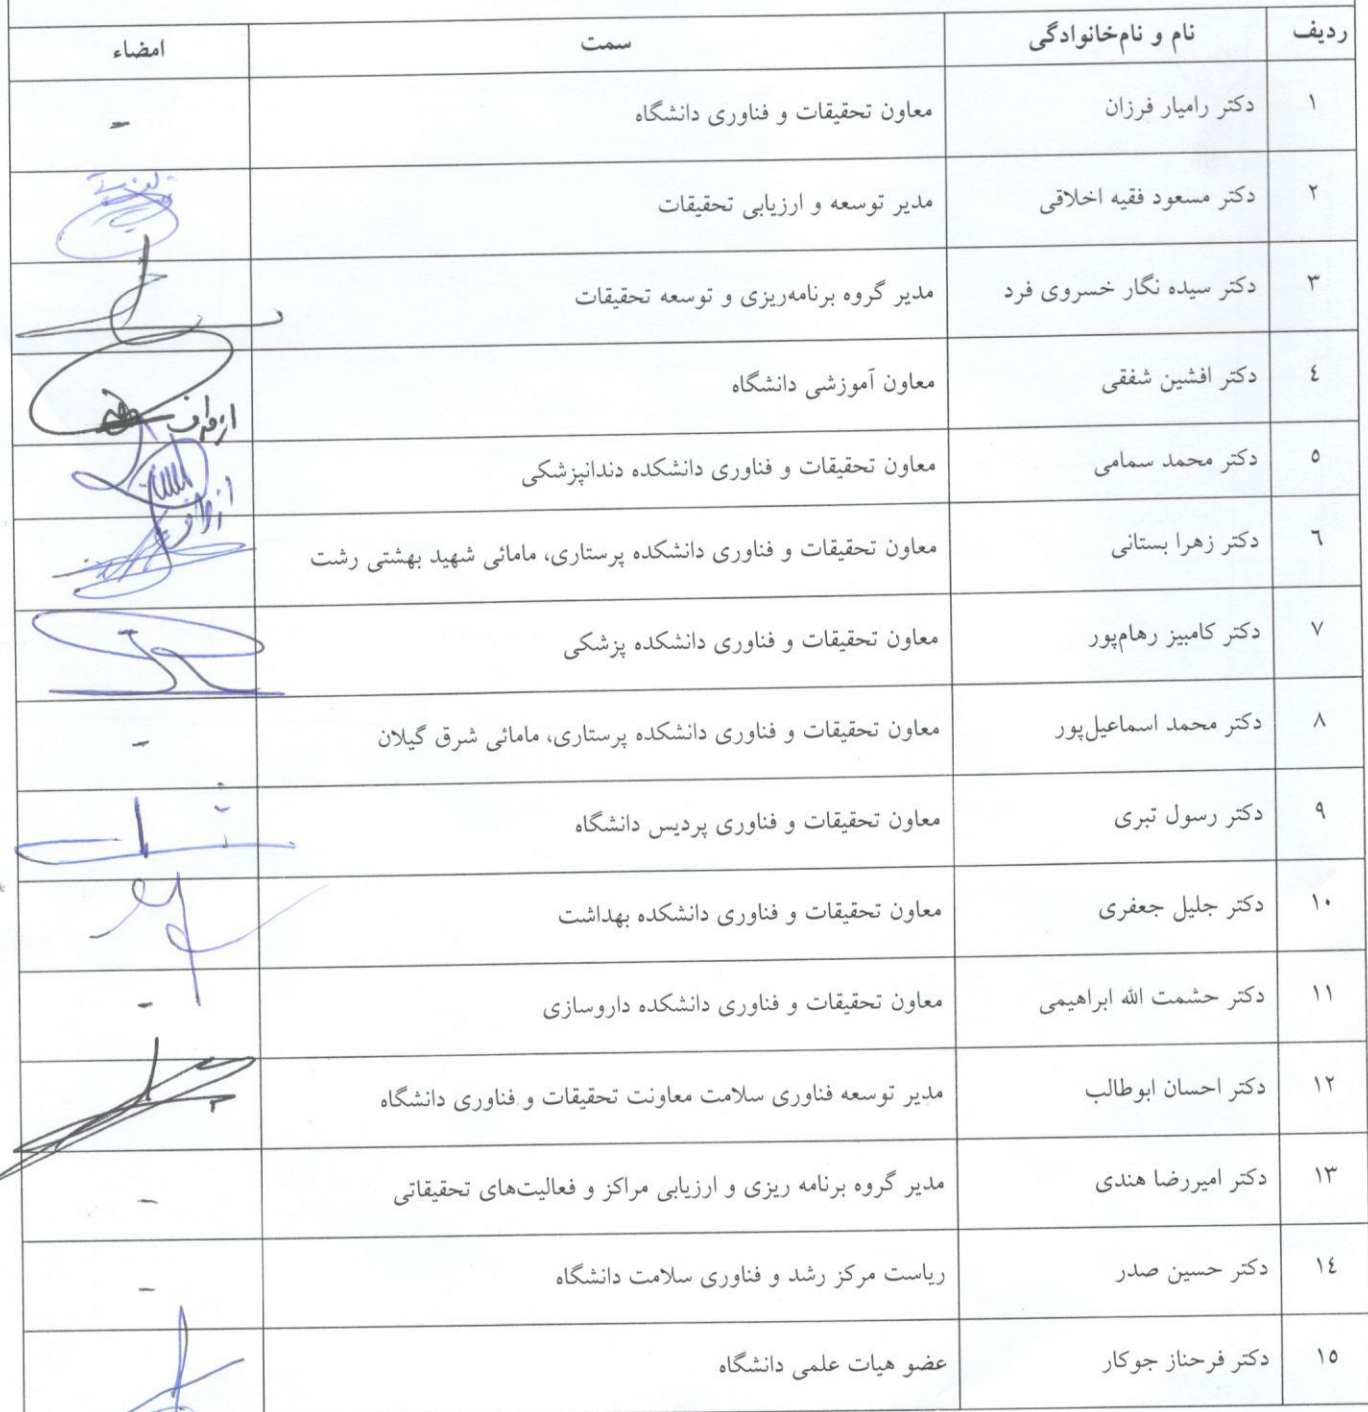 ردیف نام و نام‌خانوادگی سمت امضاء
۱ دکتر رامیار فرزان معاون تحقیقات و فناوری دانشگاه -
۲ دکتر مسعود فقیه اخلاقی مدیر توسعه و ارزیابی تحقیقات
۳ دکتر سیده نگار خسروی فرد مدیر گروه برنامه‌ریزی و توسعه تحقیقات
٤ دکتر افشین شفقی معاون آموزشی دانشگاه از طرف
٥ دکتر محمد سمامی معاون تحقیقات و فناوری دانشکده دندانپزشکی از طرف
٦ دکتر زهرا بستانی معاون تحقیقات و فناوری دانشکده پرستاری، مامائی شهید بهشتی رشت
۷ دکتر کامبیز رهام‌پور معاون تحقیقات و فناوری دانشکده پزشکی
۸ دکتر محمد اسماعیل‌پور معاون تحقیقات و فناوری دانشکده پرستاری، مامائی شرق گیلان -
۹ دکتر رسول تبری معاون تحقیقات و فناوری پردیس دانشگاه
۱۰ دکتر جلیل جعفری معاون تحقیقات و فناوری دانشکده بهداشت
۱۱ دکتر حشمت الله ابراهیمی معاون تحقیقات و فناوری دانشکده داروسازی -
۱۲ دکتر احسان ابوطالب مدیر توسعه فناوری سلامت معاونت تحقیقات و فناوری دانشگاه
۱۳ دکتر امیررضا هندی مدیر گروه برنامه ریزی و ارزیابی مراکز و فعالیت‌های تحقیقاتی -
۱٤ دکتر حسین صدر ریاست مرکز رشد و فناوری سلامت دانشگاه -
۱٥ دکتر فرحناز جوکار عضو هیات علمی دانشگاه